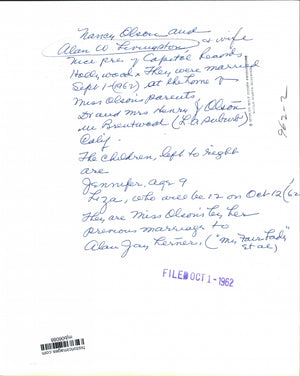 Nancy Olson and
Alan W Livingston, & wife
Vice pres of Capitol Records,
Hollywood. They were married
Sept 1-(962) at the home of
Miss Olson's parents
Dr and Mrs Henry J Olson
in Brentwood (L.A. suburb)
Calif.
The children, left to right
are
Jennifer, age 9
Liza, who will be 12 on Oct 12 (62
They are Miss Olson's by her
previous marriage to
Alan Jay Lerner, ("My Fair Lady"
et al)
FILED OCT 1 - 1962
962-2
historicimages.com